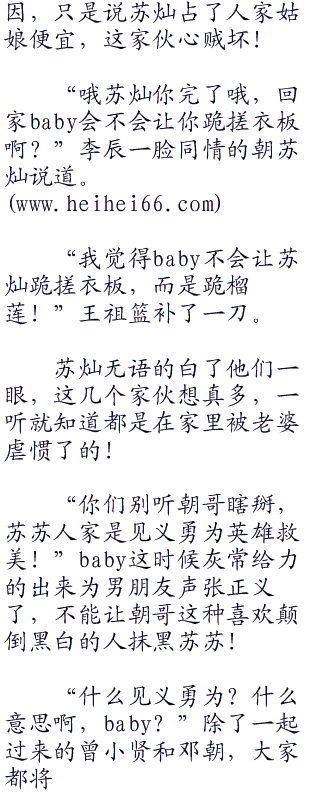 因，只是说苏灿占了人家姑
娘便宜，这家伙心贼坏！
“哦苏灿你完了哦，回
家baby会不会让你跪搓衣板
啊？”李辰一脸同情的朝苏
灿说道。
(www.heihei66.com)
“我觉得baby不会让苏
灿跪搓衣板，而是跪榴
莲！”王祖篮补了一刀。
苏灿无语的白了他们一
眼，这几个家伙想真多，一
听就知道都是在家里被老婆
虐惯了的！
“你们别听朝哥瞎掰，
苏苏人家是见义勇为英雄救
美！”baby这时候灰常给力
的出来为男朋友声张正义
了，不能让朝哥这种喜欢颠
倒黑白的人抹黑苏苏！
“什么见义勇为？什么
意思啊，baby？”除了一起
过来的曾小贤和邓朝，大家
都将